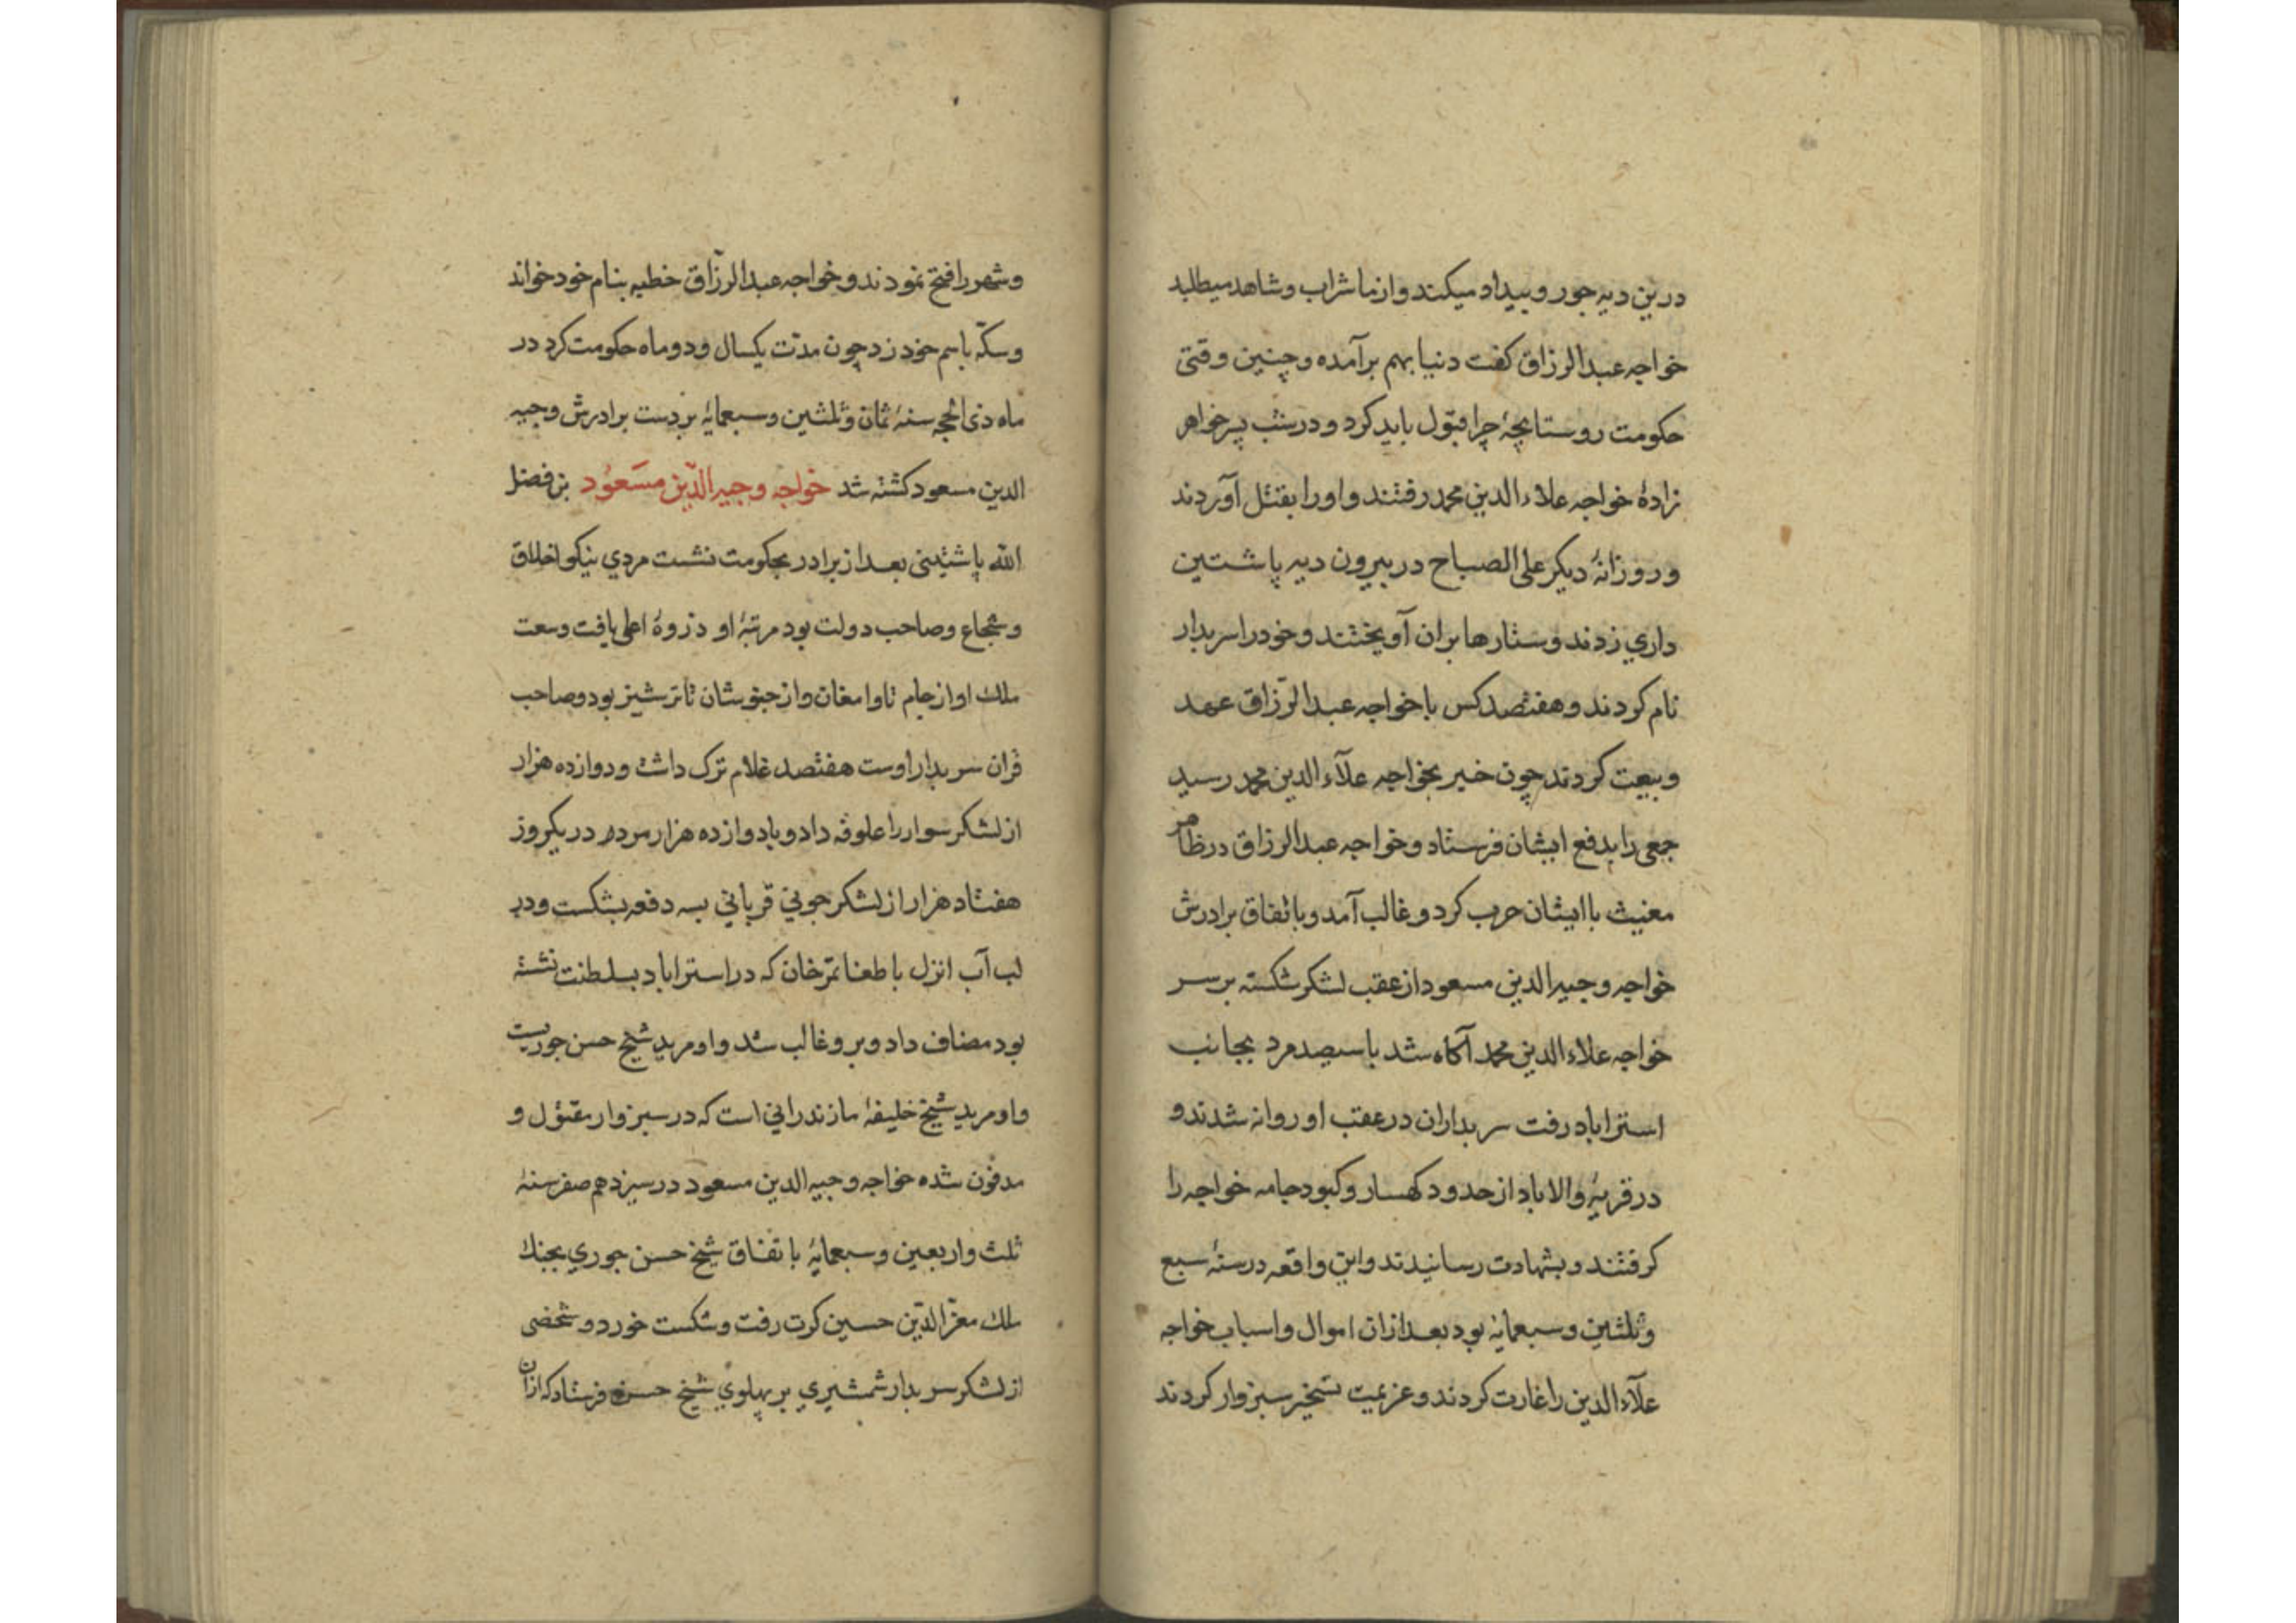 درین دیه جور و بیداد میکند و از ما شراب و شاهد میطلبد
خواجه عبدالرزاق کفت دنیا بهم برآمده و چنین وقتی
حکومت روستا بچهٔ چرا قبول باید کرد و در شب پسر خواهر
زادهٔ خواجه علاء الدین محمد رفتند و او را بقتل آوردند
و روزانهٔ دیکر علی الصباح در بیرون دیه پاشتین
داری زدند و ستارها بران آویختند و خود را سربدار
نام کردند و هفتصد کس با خواجه عبدالرّزاق عهد
و بیعت کردند چون خبر بخواجه علآء الدین محمد رسید
جمعی را بدفع ایشان فرستاد و خواجه عبدالرزاق در ظاهر
معنیث با ایشان حرب کرد و غالب آمد و با تفاق برادرش
خواجه وجیه الدین مسعود از عقب لشکر شکسته بر سر
خواجه علاء الدین محمد آکاه شد با سیصد مرد بجانب
استراباد رفت سربداران در عقب او روانه شدند و
در قریهٔ والاباد از حدود کهسار و کبود جامه خواجه را
کرفتند و بشهادت رسانیدند و این واقعه در سنهٔ سبع
و ثلثین و سبعمایهٔ بود بعد ازان اموال و اسباب خواجه
علآء الدین را غارت کردند و عزیمت تسخیر سبزوار کردند
و شهر را فتح نمودند و خواجه عبدالرزّاق خطبه بنام خود خواند
و سکّه باسم خود زد چون مدّت یکسال و دو ماه حکومت کرد در
ماه ذی الحجه سنهٔ ثمان و ثلثین و سبعمایهٔ بر دست برادرش وجیه
الدین مسعود کشته شد خواجه وجیه الدّین مسَعُود بن فضل
الله پاشتینی بعد از برادر بحکومت نشست مردی نیکو اخلاق
و شجاع و صاحب دولت بود مرتبهٔ او ذروهٔ اعلی یافت وسعت
ملک او از جام تا وامغان و از جنوشان تا ترشیز بود و صاحب
قران سربدار اوست هفتصد غلام ترک داشت و دوازده هزار
از لشکر سوار را علوفه داد و با دوازده هزار مرد در یکروز
هفتاد هزار از لشکر جونی قربانی بسه دفعه بشکست و در
لب آب اترل با طغاتمرخان که در استراباد بسلطنت نشسته
بود مصاف داد و برو غالب شد و او مرید شیخ حسن جوریست
و او مرید شیخ خلیفهٔ مازندرانی است که در سبزوار مقتول و
مدفون شده خواجه وجیه الدین مسعود در سیزدهم صفر سنهٔ
ثلث و اربعین و سبعمایهٔ با تفاق شیخ حسن جوری بجنک
ملک معزّ الدّین حسین کرت رفت و شکست خورد و شخصی
از لشکر سربدار شمشیری بر پهلوی شیخ حسن فرستاد که ازان